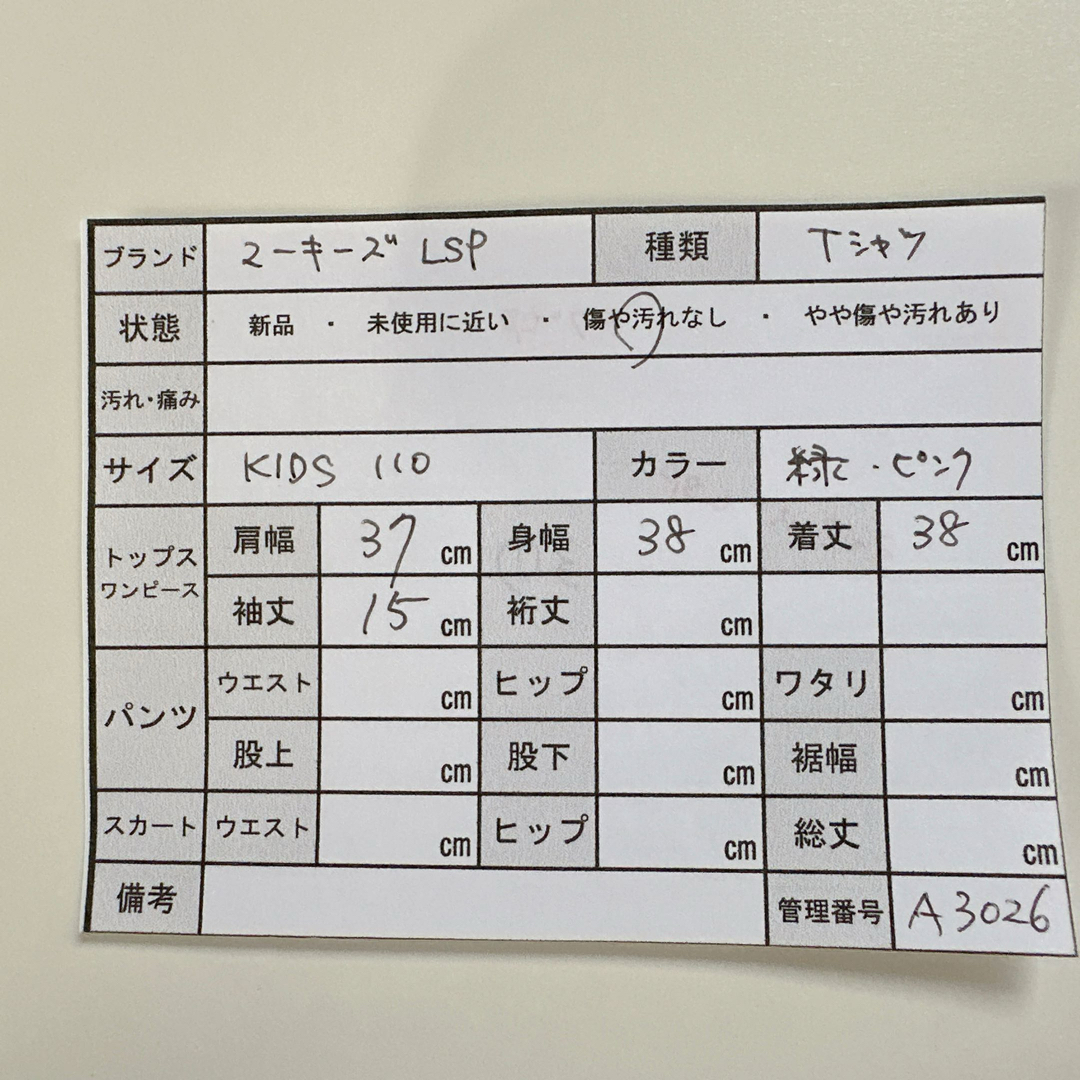 ブランド マーキーズ LSP 種類 Tシャツ
状態 新品 ・ 未使用に近い ・ 傷や汚れなし ・ やや傷や汚れあり
汚れ・痛み
サイズ KIDS 110 カラー 緑 ・ ピンク
トップス ワンピース
肩幅 37 cm 身幅 38 cm 着丈 38 cm
袖丈 15 cm 裄丈 cm
パンツ
ウエスト cm ヒップ cm ワタリ cm
股上 cm 股下 cm 裾幅 cm
スカート ウエスト cm ヒップ cm 総丈 cm
備考 管理番号 A3026